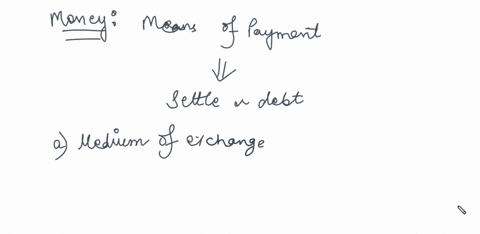 Money: Means of Payment
⇓
Settle a debt
a) Medium of exchange